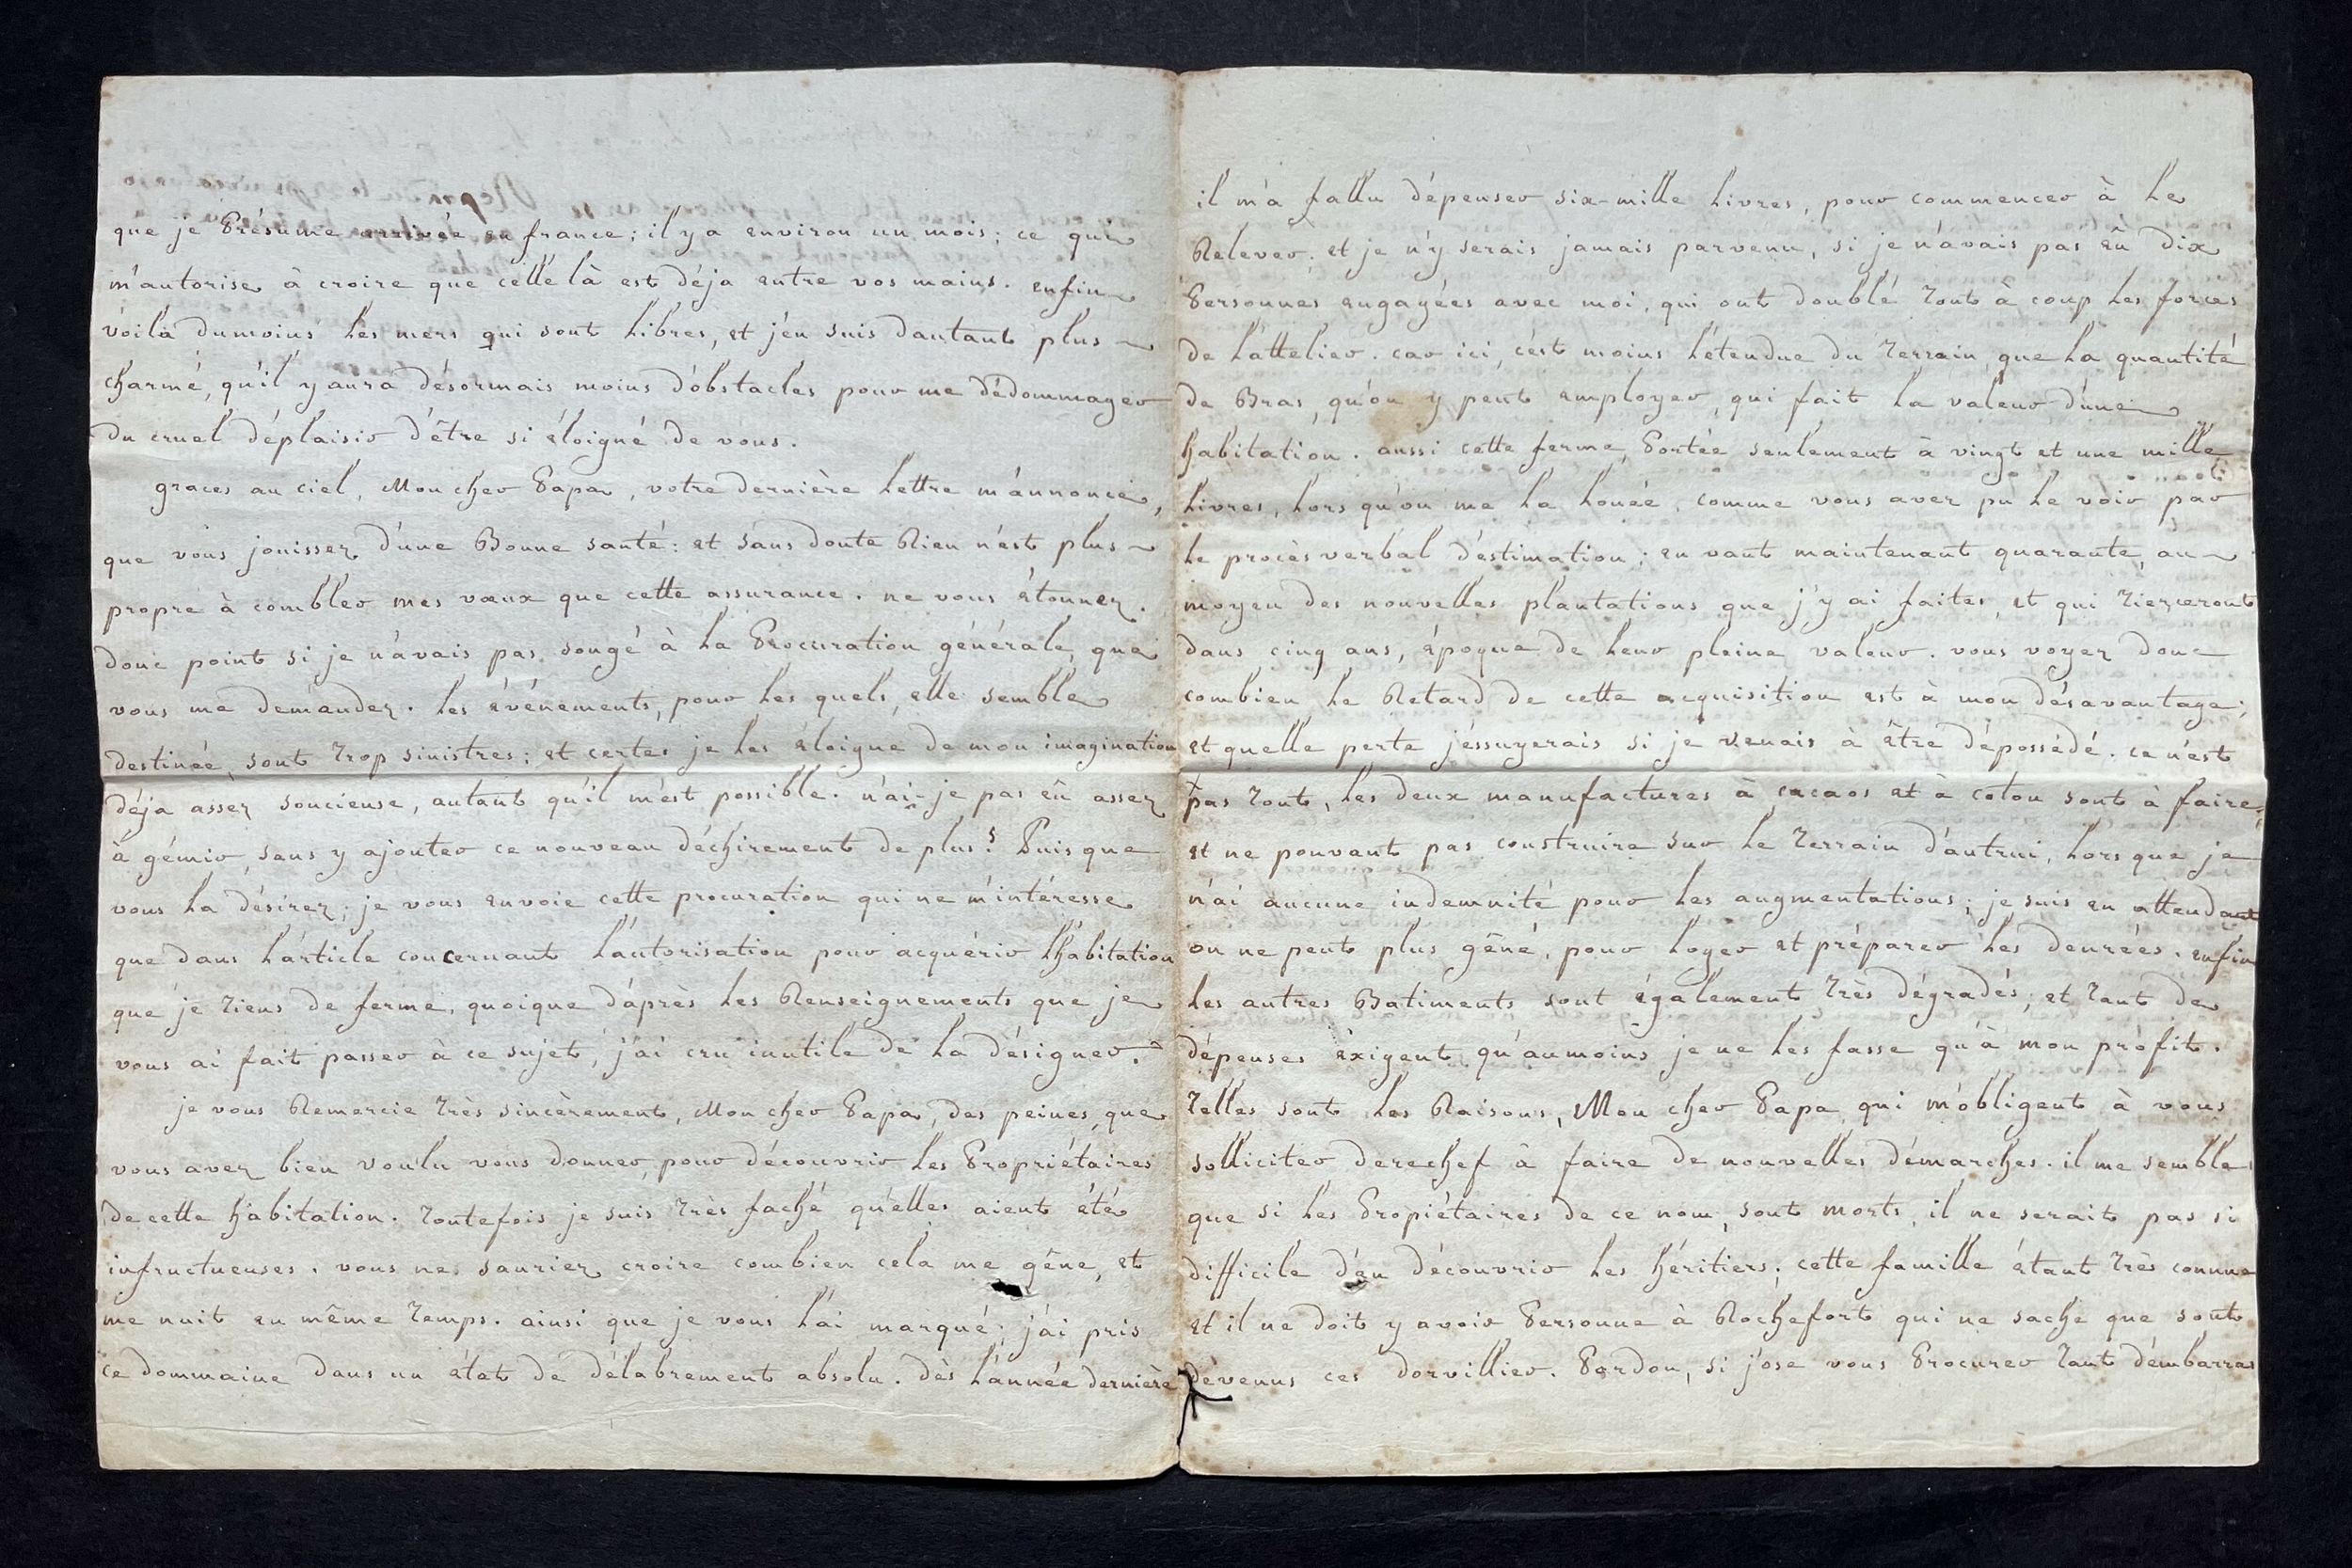 que je Présume arrivée en france; il y a environ un mois; ce qui
m'autorise à croire que celle là est déja entre vos mains. enfin
voilà dumoins les mers qui sont libres, et j'en suis dautant plus
charmé, qu'il y aura désormais moins d'obstacles pour me dédommager
du cruel déplaisir d'être si éloigné de vous.
graces au ciel, Mon cher Papa, votre dernière lettre m'annonce,
que vous jouissez d'une Bonne santé: et sans doute Rien n'est plus
propre à combler mes vœux que cette assurance. ne vous étonnez
donc point si je n'avais pas songé à la Procuration générale, que
vous me demandez. les événements, pour les quels, elle semble
destinée, sont trop sinistres; et certes je les éloigne de mon imagination
déja assez soucieuse, autant qu'il m'est possible. n'ai-je pas eû assez
à gémir, sans y ajouter ce nouveau déchirement de plus? Puis que
vous la désirez; je vous envoie cette procuration qui ne m'intéresse
que dans l'article concernant l'autorisation pour acquérir l'habitation
que je tiens de ferme, quoique d'après les Renseignements que je
vous ai fait passer à ce sujet, j'ai cru inutile de la désigner.
je vous Remercie très sincèrement, Mon cher Papa, des peines, que
vous avez bien voulu vous donner, pour découvrir les Propriétaires
de cette habitation. toutefois je suis très faché qu'elles aient été
infructueuses. vous ne sauriez croire combien cela me gêne, et
me nuit en même temps. ainsi que je vous l'ai marqué; j'ai pris
ce dommaine dans un état de délabrement absolu. dès l'année dernière
il m'a fallu dépenser six-mille livres, pour commencer à le
Relever; et je n'y serais jamais parvenu, si je n'avais pas eû dix
Personnes engagées avec moi, qui ont doublé tout à coup les forces
de l'attelier. car ici, c'est moins l'étendue du terrain, que la quantité
de Bras, qu'on y peut employer, qui fait la valeur d'une
habitation. aussi cette ferme, Portée seulement à vingt et une mille
livres, lors qu'on me la louée, comme vous avez pu le voir par
le procès verbal d'éstimation; en vaut maintenant quarante, au
moyen des nouvelles plantations que j'y ai faites, et qui tierceront
dans cinq ans, époque de leur pleine valeur. vous voyez donc
combien le Retard de cette acquisition est à mon désavantage;
et quelle perte j'éssuyerais si je venais à être dépossédé. ce n'est
pas tout, les deux manufactures à cacaos et à coton sont à faire,
et ne pouvant pas construire sur le terrain d'autrui, lors que je
n'ai aucune indemnité pour les augmentations; je suis en attendant
on ne peut plus gêné, pour loger et préparer les denrées. enfin
les autres Batiments sont également très dégradés; et tant de
dépenses éxigent qu'aumoins je ne les fasse qu'à mon profit.
telles sont les Raisons, Mon cher Papa, qui m'obligent à vous
solliciter derechef à faire de nouvelles démarches. il me semble
que si les Propiétaires de ce nom, sont morts, il ne serait pas si
difficile d'en découvrir les héritiers; cette famille étant très connue
et il ne doit y avoir Personne à Rochefort qui ne sache que sont
dévenus ces dorvillier. Pardon, si j'ose vous Procurer tant d'embarras